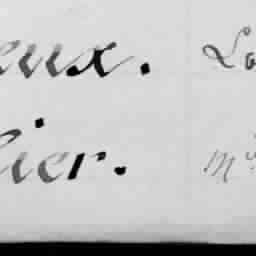 eux. Lo
lier. M